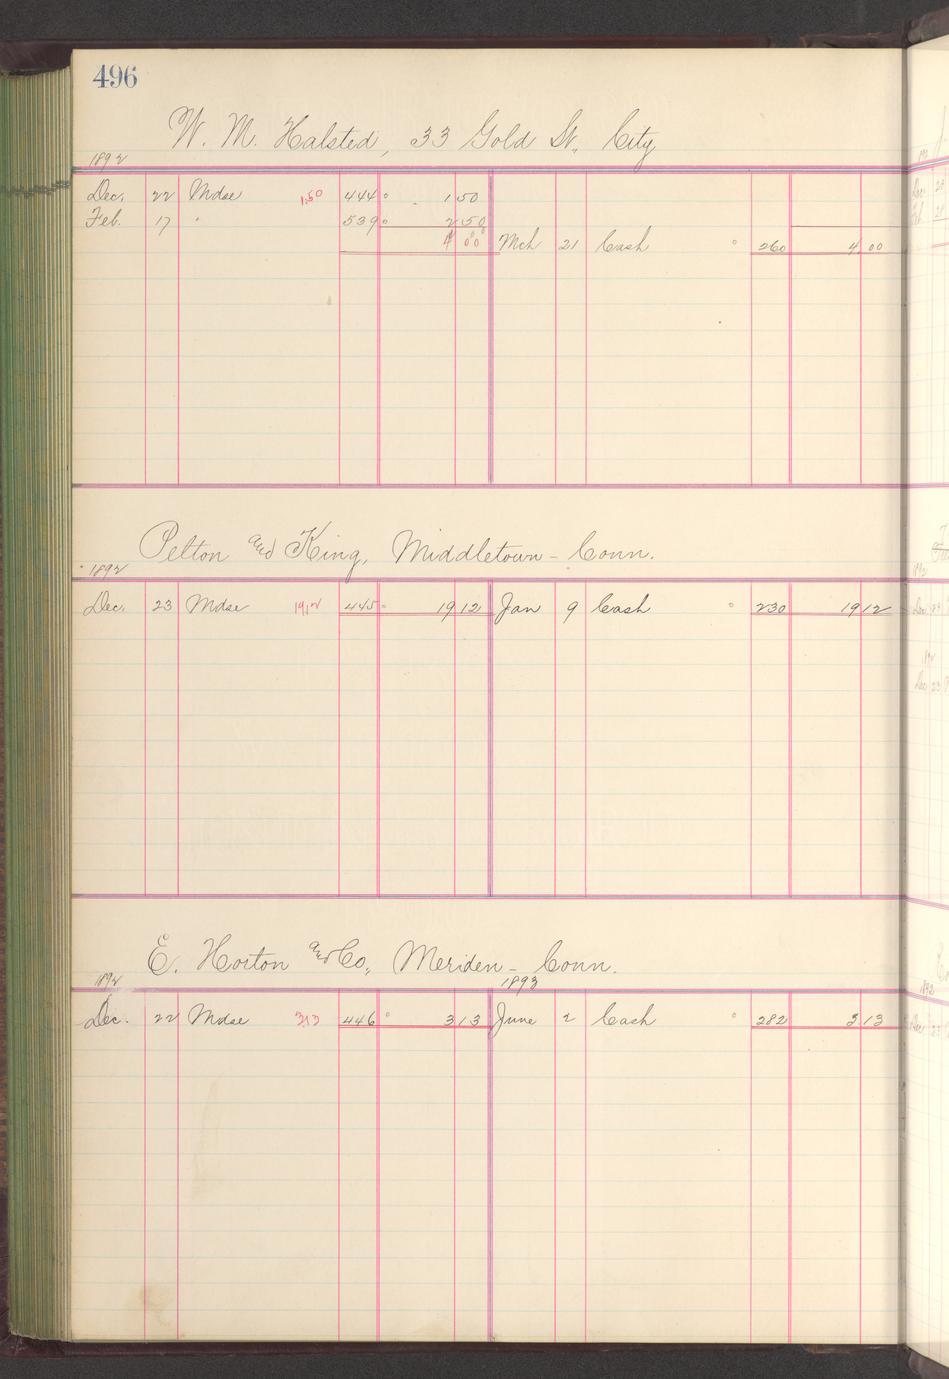 496
W. M. Halsted, 33 Gold St., City
1892
Dec. 22 Mdse 1.50 444 1 50
Feb. 17 " 539 2 50
4 00 Mch 21 Cash 260 4 00
Pelton and King, Middletown - Conn.
1892
Dec. 23 Mdse 19.12 445 19 12 Jan 9 Cash 230 19 12
E. Horton and Co., Meriden - Conn.
1892 1893
Dec. 22 Mdse 3.13 446 3 13 June 2 Cash 282 3 13